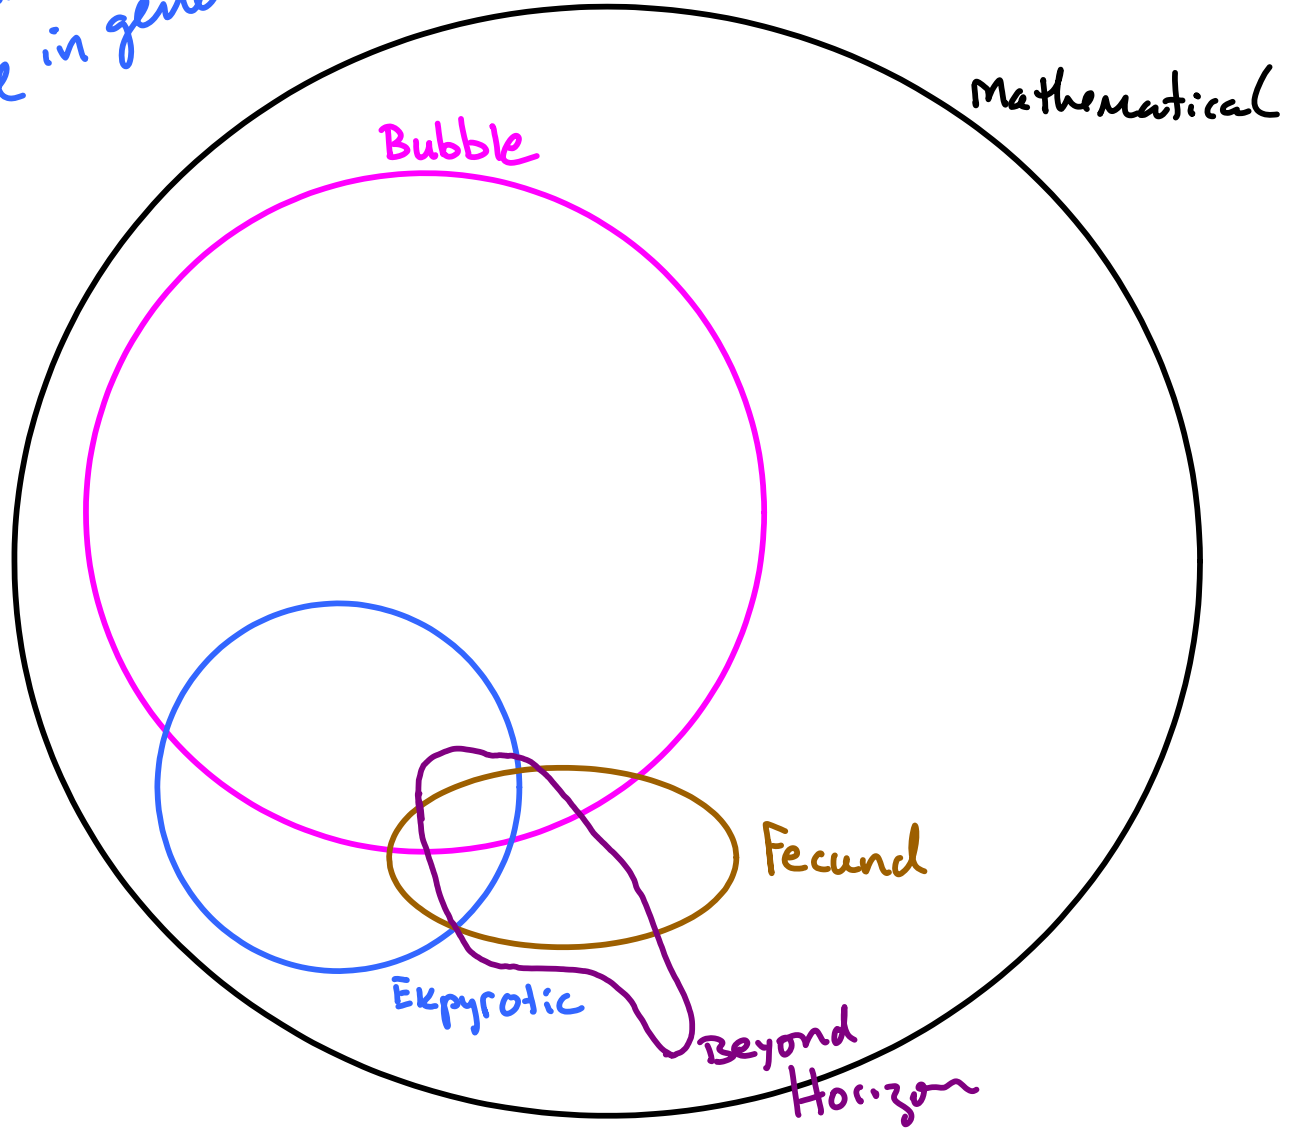 in
Mathematical
Bubble
Fecund
Ekpyrotic
Beyond
Horizon